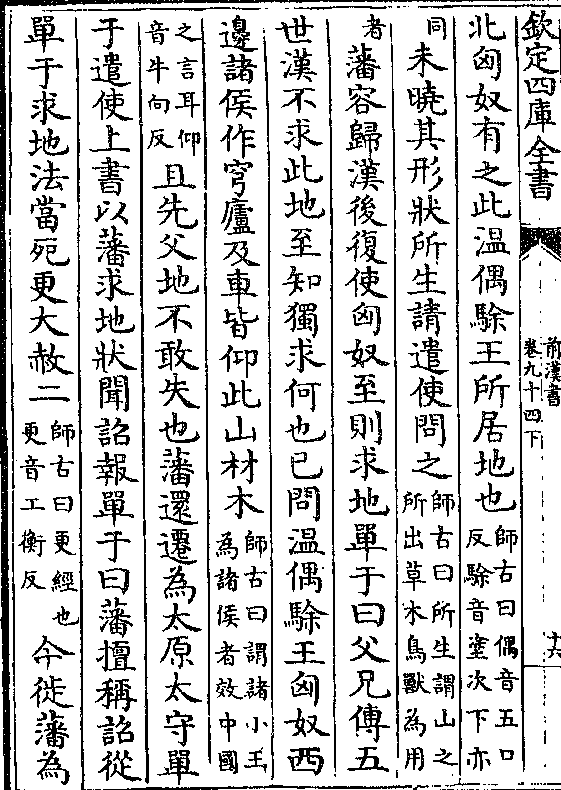 欽定四庫全書
前漢書
卷九十四下
十六
北匈奴有之此溫偶駼王所居地也師古曰偶音五口
反駼音塗次下亦
同未曉其形狀所生請遣使問之師古曰所生謂山之
所出草木鳥獸為用
者藩容歸漢後復使匈奴至則求地單于曰父兄傳五
世漢不求此地至知獨求何也已問溫偶駼王匈奴西
邊諸侯作穹廬及車皆仰此山材木師古曰謂諸小王
為諸侯者效中國
之言耳仰
音牛向反且先父地不敢失也藩還遷為太原太守單
于遣使上書以藩求地狀聞詔報單于曰藩擅稱詔從
單于求地法當死更大赦二師古曰更經也
更音工衡反今徙藩為